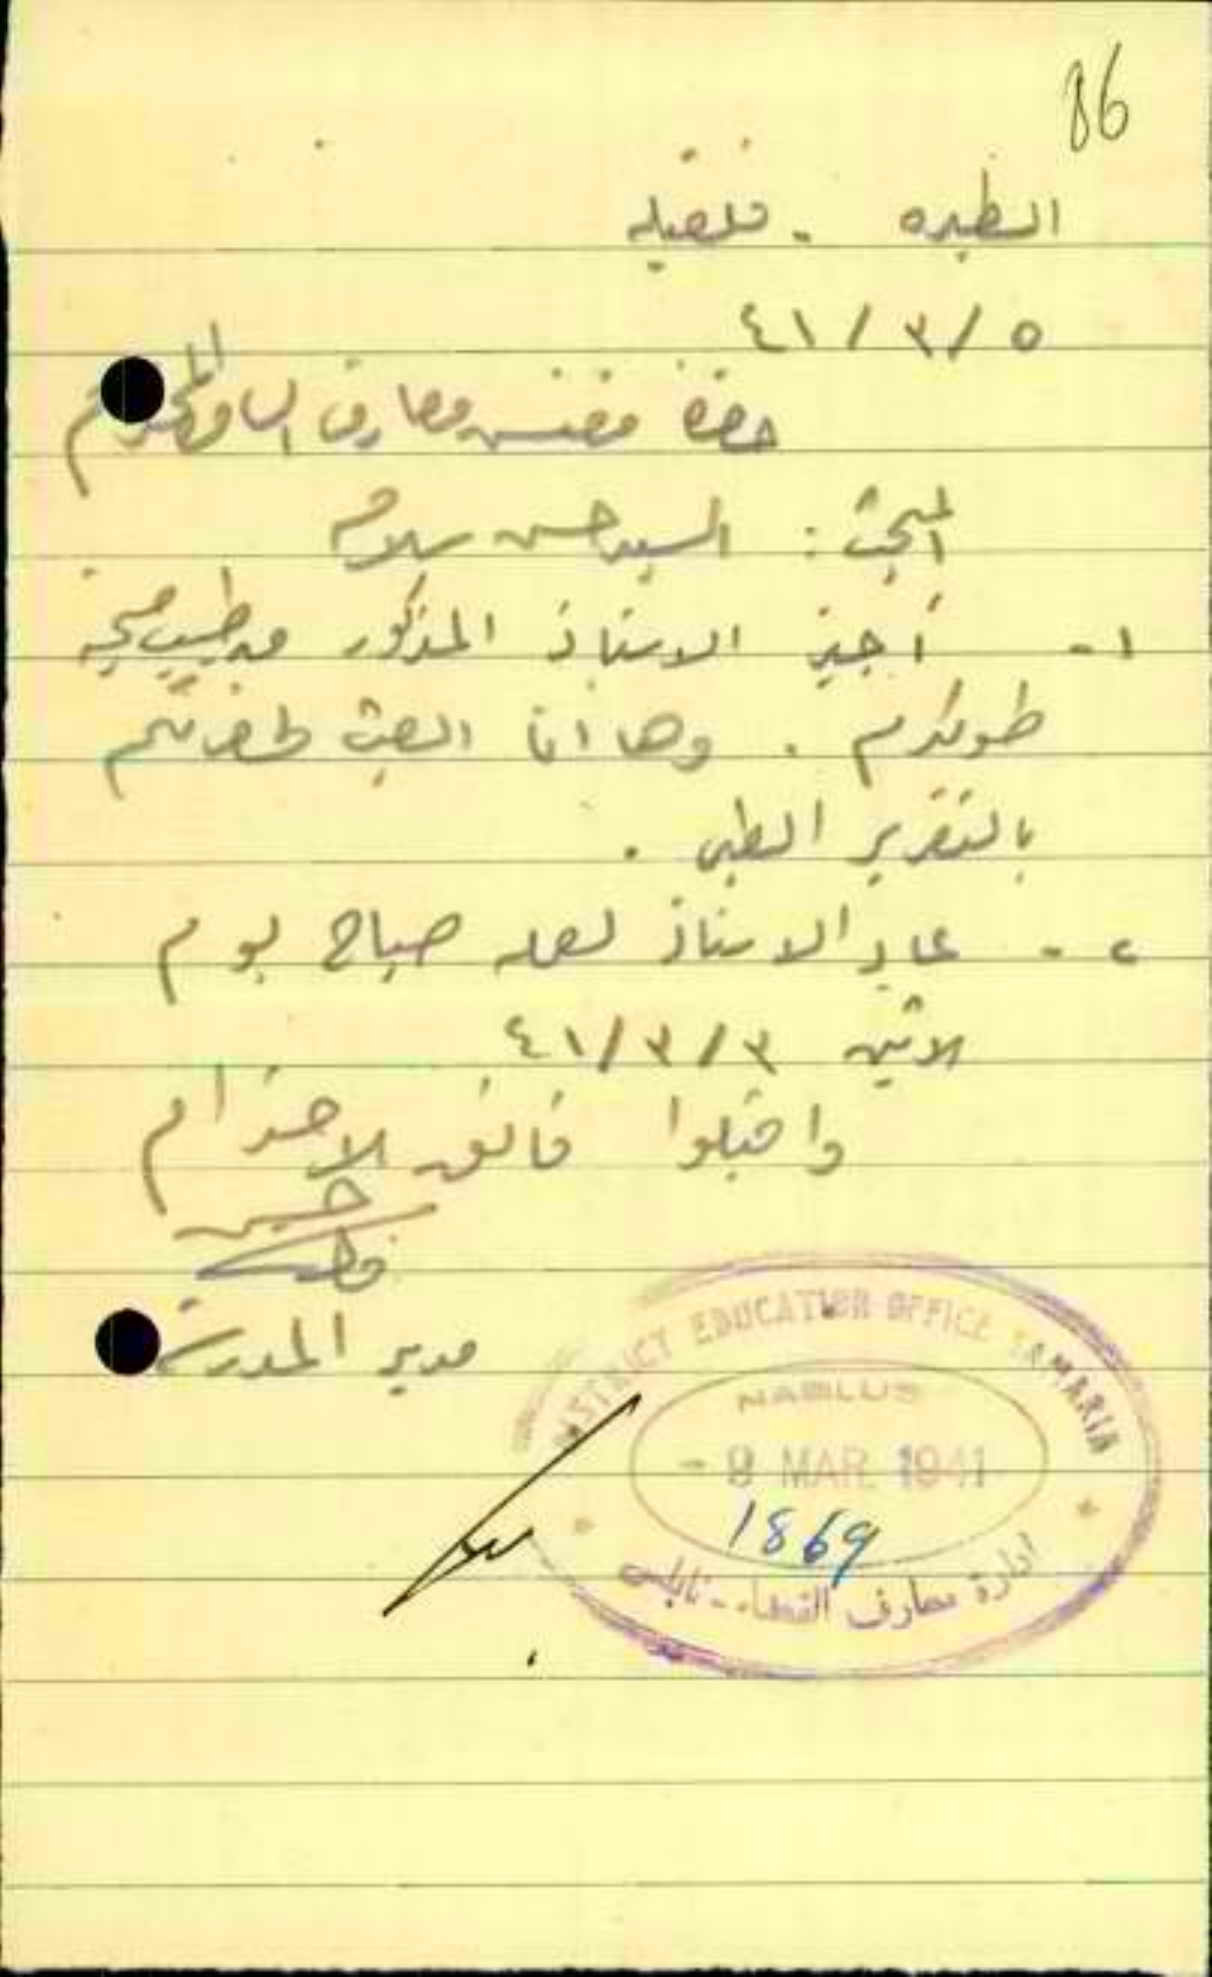 86
الطيره - قلقيليه
٤١/٣/٥
حضرة مفتش معارف السامره المحترم
المبحث : السيد حسن سلامه
١- أجيز الاستاذ المذكور من طبيب صحية
طولكرم . وها انا ابعث لحضرتكم
بالتقرير الطبي .
٢- عاد الاستاذ لعمله صباح يوم
الاثنين ٤١/٣/٣
واقبلوا فائق الاحترام
حسن
مدير المدرسة
DISTRICT EDUCATION OFFICE SAMARIA
NABLUS
- 9 MAR. 1941
1869
ادارة معارف القضاء - نابلس